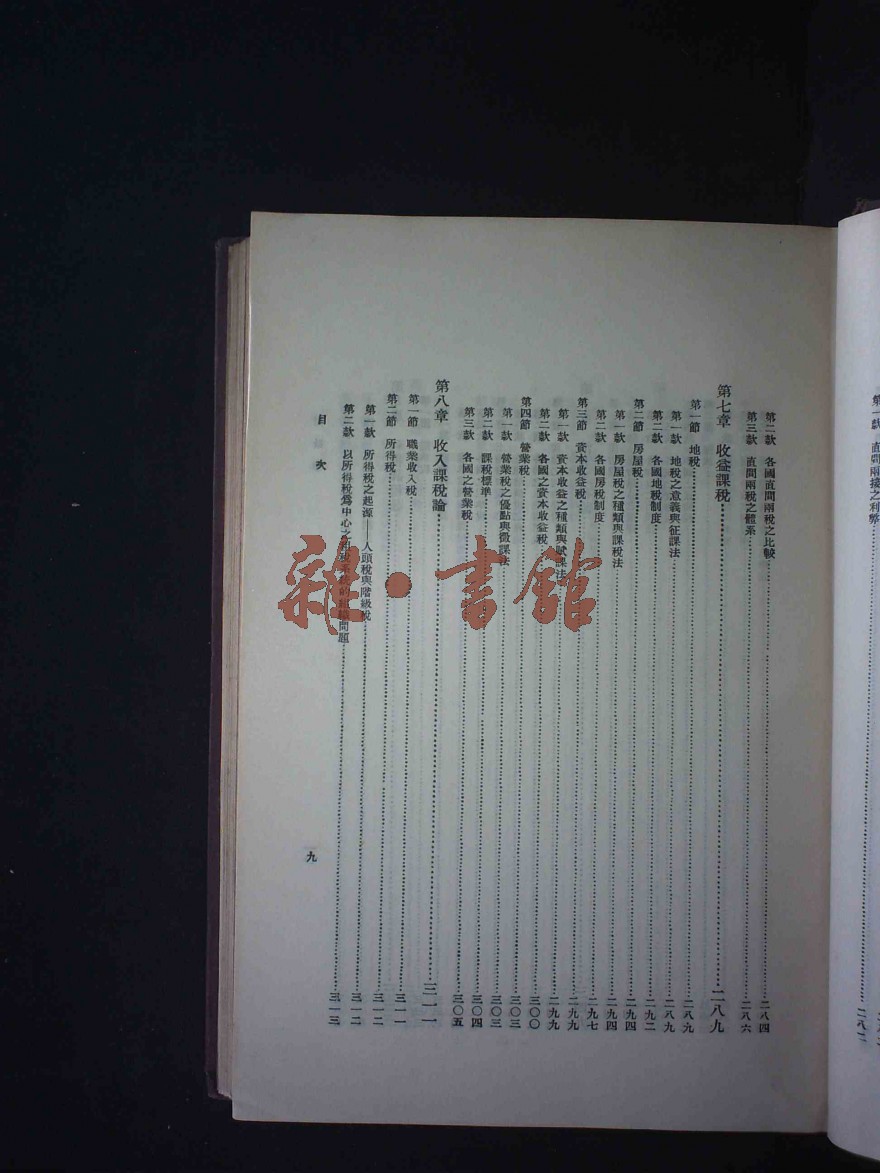 第一款　直間兩接之利弊
第二款　各國直間兩稅之比較……二八四
第三款　直間兩稅之體系……二八六
第七章　收益課稅……二八九
第一節　地稅……二八九
第一款　地稅之意義與征課法……二八九
第二款　各國地稅制度……二九二
第二節　房屋稅……二九四
第一款　房屋稅之種類與課稅法……二九四
第二款　各國房稅制度……二九七
第三節　資本收益稅……二九九
第一款　資本收益之種類與賦課法……二九九
第二款　各國之資本收益稅……三〇〇
第四節　營業稅……三〇三
第一款　營業稅之優點與徵課法……三〇三
第二款　課稅標準……三〇四
第三款　各國之營業稅……三〇五
第八章　收入課稅論……三一一
第一節　職業收入稅……三一一
第二節　所得稅……三一二
第一款　所得稅之起源——人頭稅與階級稅……三一二
第二款　以所得稅爲中心之 問題……三一三
目次
九
雜·書館